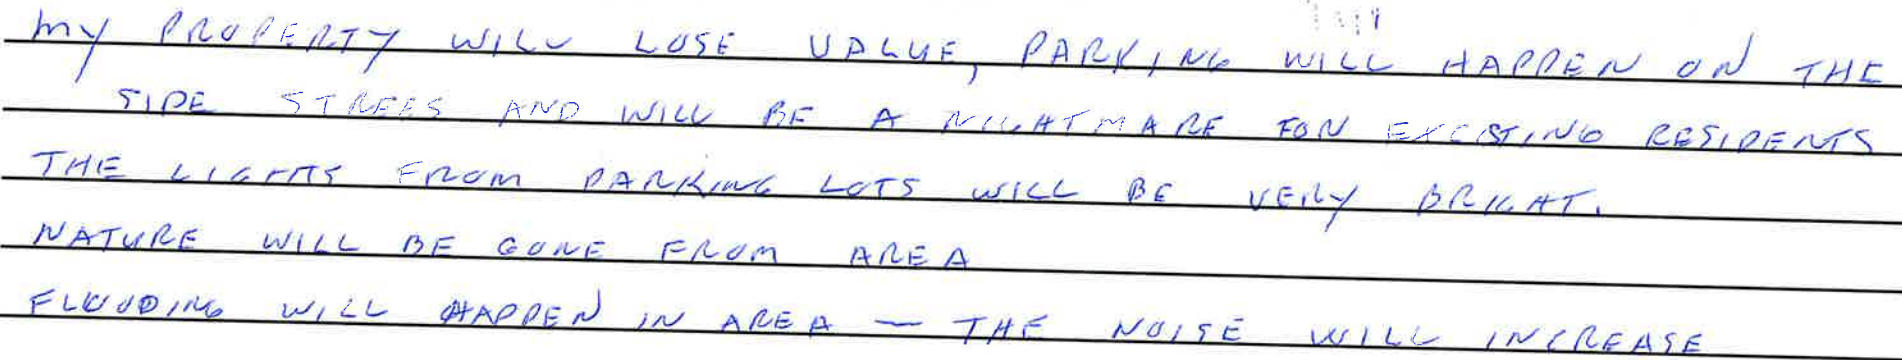 MY PROPERTY WILL LOSE VALUE, PARKING WILL HAPPEN ON THE
SIDE STREES AND WILL BE A NIGHTMARE FOR EXCISTING RESIDENTS
THE LIGHTS FROM PARKING LOTS WILL BE VERY BRIGHT.
NATURE WILL BE GONE FROM AREA
FLOODING WILL HAPPEN IN AREA — THE NOISE WILL INCREASE